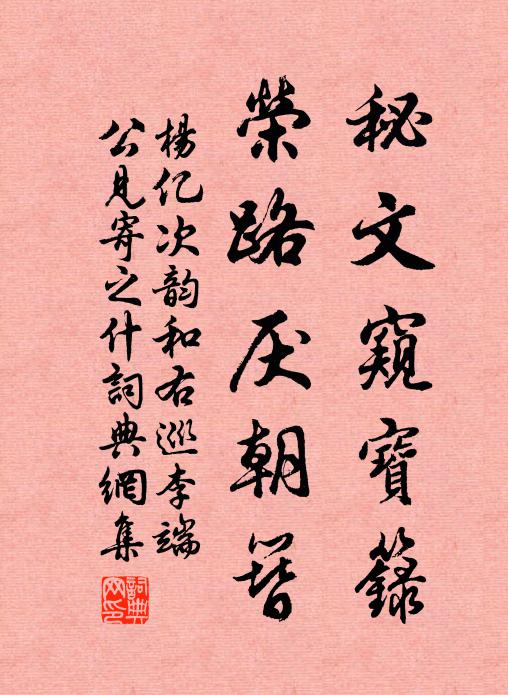 秘文窥寶籙
榮路厌朝簪
楊亿次韵和右巡李端
公見寄之什詞典網集
詞典网印